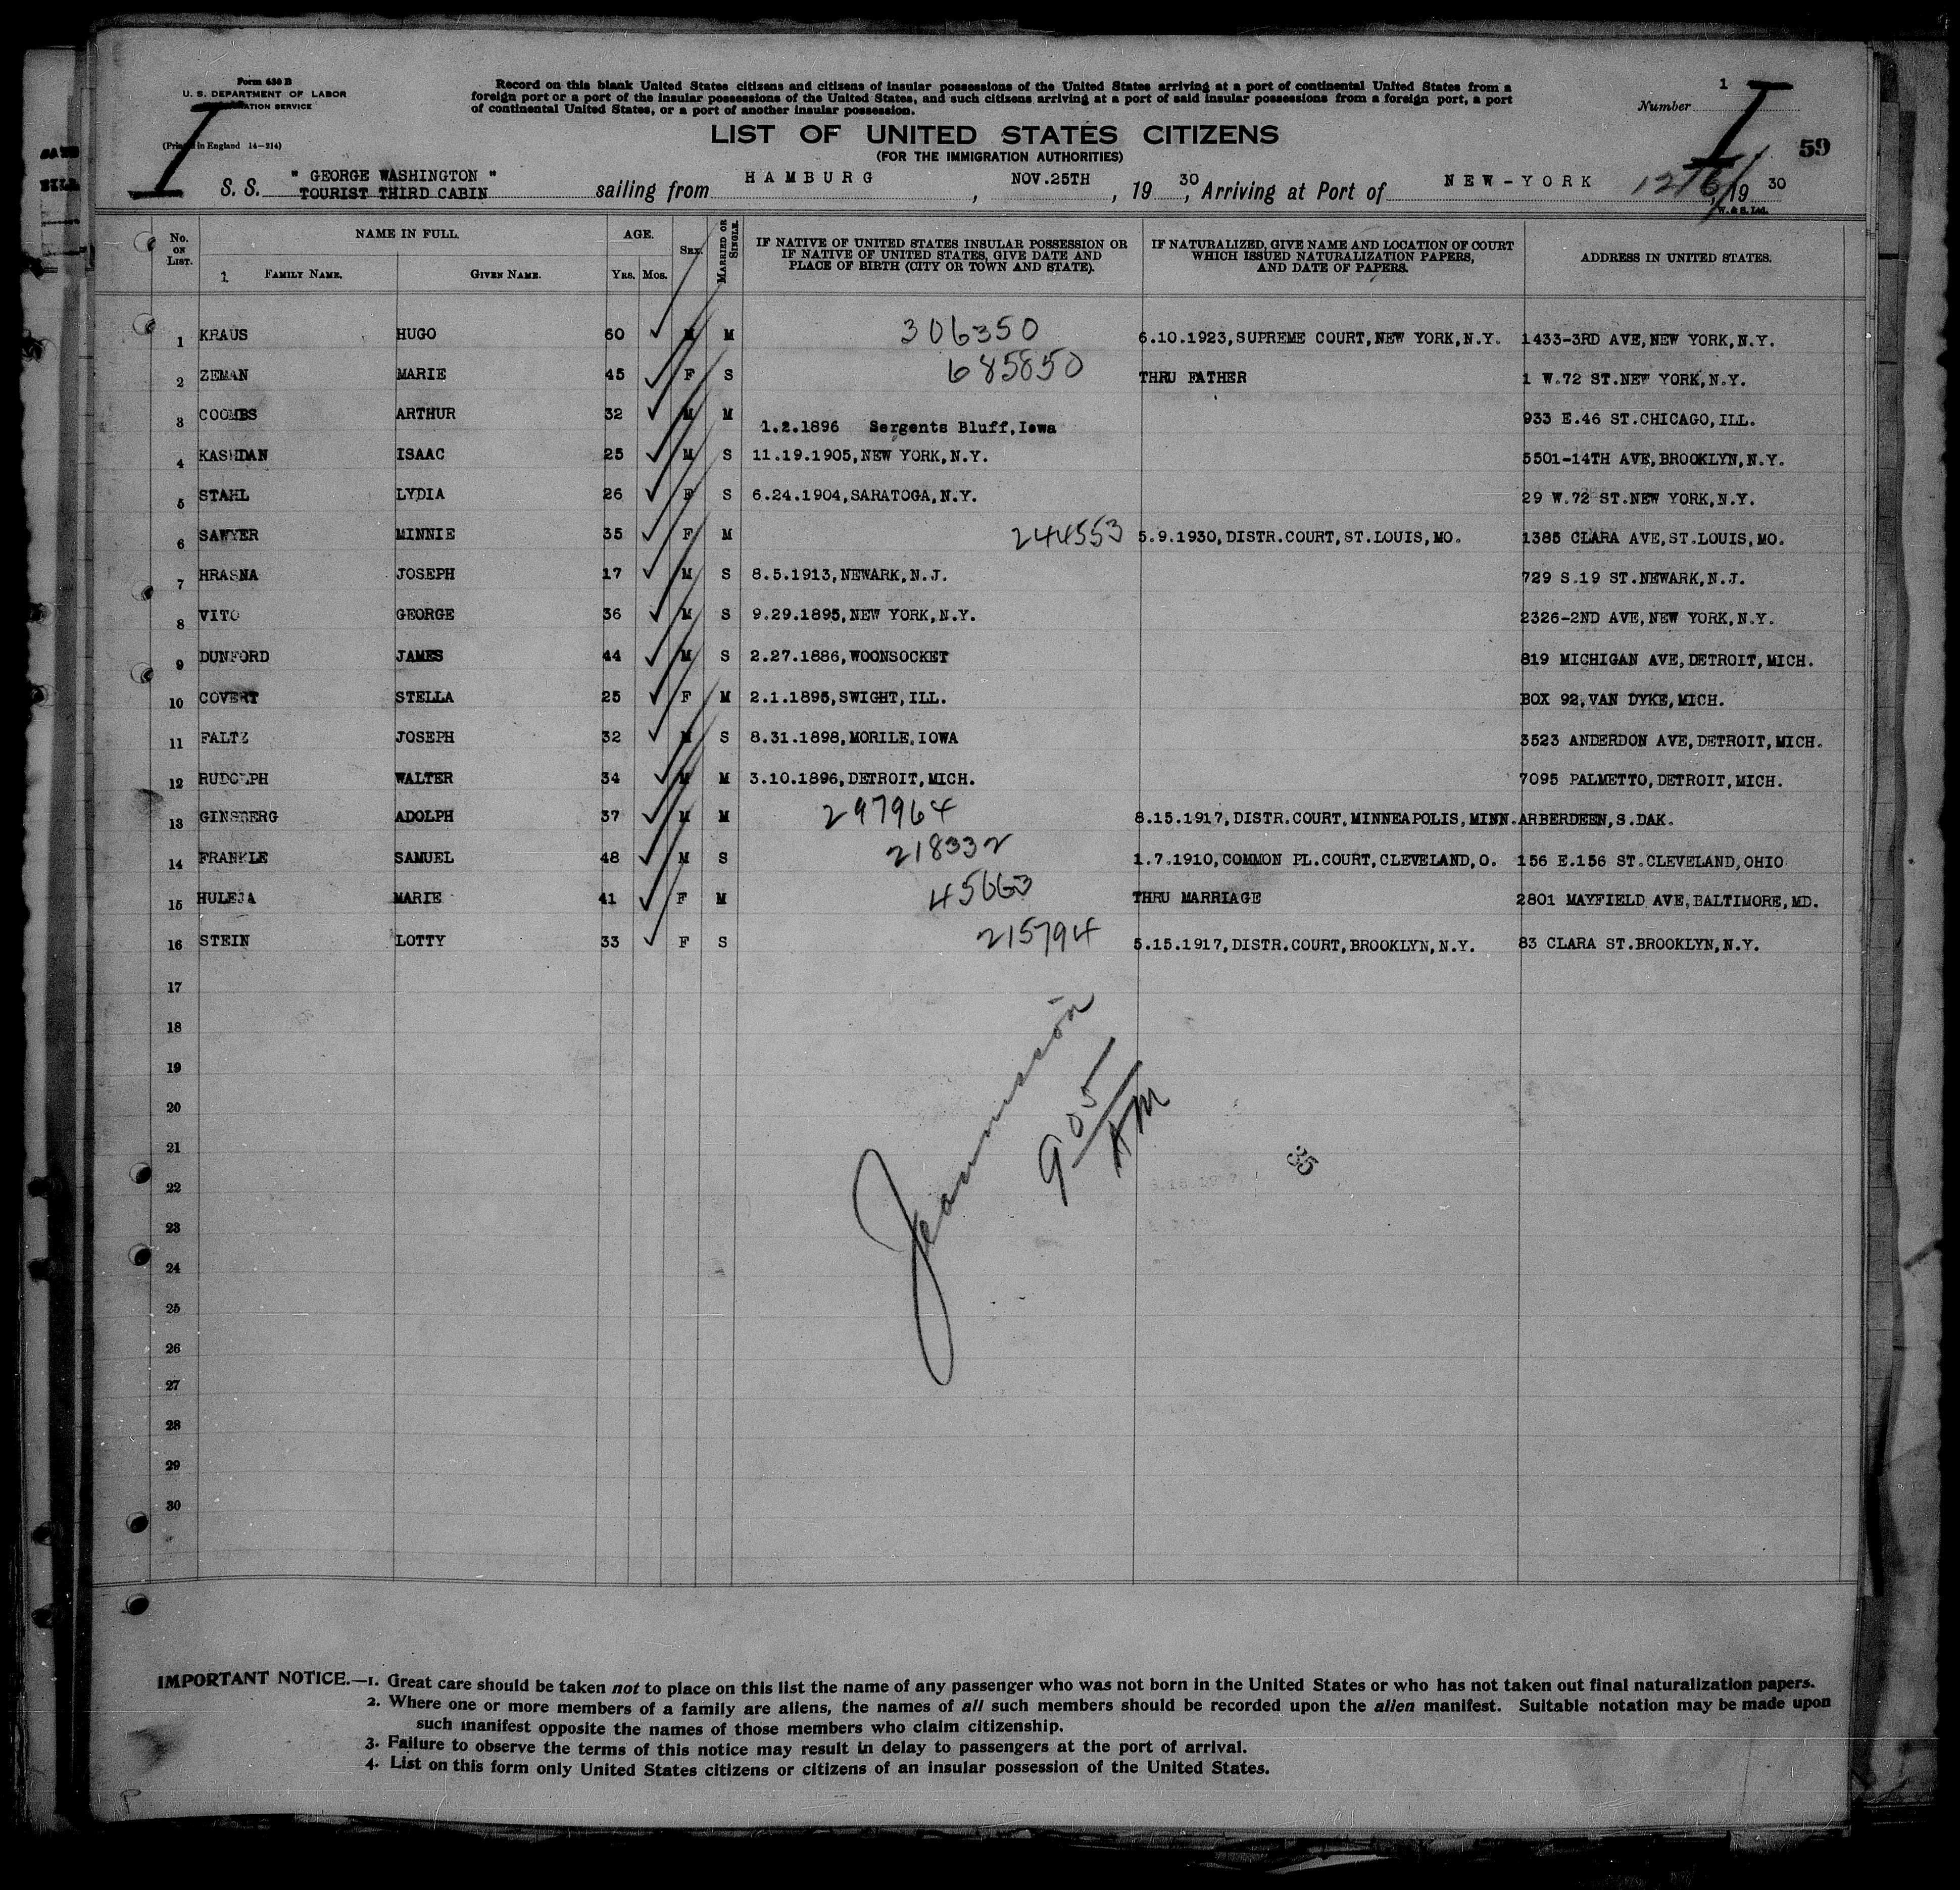 Form 630 B
U. S. DEPARTMENT OF LABOR
SERVICE
(Printed in England 14-214)
Record on this blank United States citizens and citizens of insular possessions of the United States arriving at a port of continental United States from a
foreign port or a port of the insular possessions of the United States, and such citizens arriving at a port of said insular possessions from a foreign port, a port
of continental United States, or a port of another insular possession.
Number 1
I
I
59
LIST OF UNITED STATES CITIZENS
(FOR THE IMMIGRATION AUTHORITIES)
S. S. " GEORGE WASHINGTON " TOURIST THIRD CABIN sailing from HAMBURG, NOV.25TH, 19 30, Arriving at Port of NEW-YORK 12/6/19 30
W. & S. Ltd.
No. ON LIST. NAME IN FULL. AGE. SEX. MARRIED OR SINGLE. IF NATIVE OF UNITED STATES INSULAR POSSESSION OR IF NATIVE OF UNITED STATES, GIVE DATE AND PLACE OF BIRTH (CITY OR TOWN AND STATE). IF NATURALIZED, GIVE NAME AND LOCATION OF COURT WHICH ISSUED NATURALIZATION PAPERS, AND DATE OF PAPERS. ADDRESS IN UNITED STATES.
1 FAMILY NAME. GIVEN NAME. YRS. MOS.
1 KRAUS HUGO 60 M M 306350 6.10.1923,SUPREME COURT,NEW YORK,N.Y. 1433-3RD AVE,NEW YORK,N.Y.
2 ZEMAN MARIE 45 F S 685850 THRU FATHER 1 W.72 ST.NEW YORK,N.Y.
3 COOMBS ARTHUR 32 M M 1.2.1896 Sergents Bluff,Iowa 933 E.46 ST.CHICAGO,ILL.
4 KASHDAN ISAAC 25 M S 11.19.1905,NEW YORK,N.Y. 5501-14TH AVE,BROOKLYN,N.Y.
5 STAHL LYDIA 26 F S 6.24.1904,SARATOGA,N.Y. 29 W.72 ST.NEW YORK,N.Y.
6 SAWYER MINNIE 35 F M 244553 5.9.1930,DISTR.COURT,ST.LOUIS,MO. 1385 CLARA AVE,ST.LOUIS,MO.
7 HRASNA JOSEPH 17 M S 8.5.1913,NEWARK,N.J. 729 S.19 ST.NEWARK,N.J.
8 VITO GEORGE 36 M S 9.29.1895,NEW YORK,N.Y. 2326-2ND AVE,NEW YORK,N.Y.
9 DUNFORD JAMES 44 M S 2.27.1886,WOONSOCKET 819 MICHIGAN AVE,DETROIT,MICH.
10 COVERT STELLA 25 F M 2.1.1895,SWIGHT,ILL. BOX 92,VAN DYKE,MICH.
11 FALTZ JOSEPH 32 M S 8.31.1898,MORILE,IOWA 3523 ANDERDON AVE,DETROIT,MICH.
12 RUDOLPH WALTER 34 M M 3.10.1896,DETROIT,MICH. 7095 PALMETTO,DETROIT,MICH.
13 GINSBERG ADOLPH 37 M M 297964 8.15.1917,DISTR.COURT,MINNEAPOLIS,MINN. ARBERDEEN,S.DAK.
14 FRANKLE SAMUEL 48 M S 218332 1.7.1910,COMMON PL.COURT,CLEVELAND,O. 156 E.156 ST.CLEVELAND,OHIO
15 HULEJA MARIE 41 F M 45663 THRU MARRIAGE 2801 MAYFIELD AVE,BALTIMORE,MD.
16 STEIN LOTTY 33 F S 215794 5.15.1917,DISTR.COURT,BROOKLYN,N.Y. 83 CLARA ST.BROOKLYN,N.Y.
17
18
19
20
21
22
23
24
25
26
27
28
29
30
905 AM
35
IMPORTANT NOTICE.—1. Great care should be taken not to place on this list the name of any passenger who was not born in the United States or who has not taken out final naturalization papers.
2. Where one or more members of a family are aliens, the names of all such members should be recorded upon the alien manifest. Suitable notation may be made upon
such manifest opposite the names of those members who claim citizenship.
3. Failure to observe the terms of this notice may result in delay to passengers at the port of arrival.
4. List on this form only United States citizens or citizens of an insular possession of the United States.